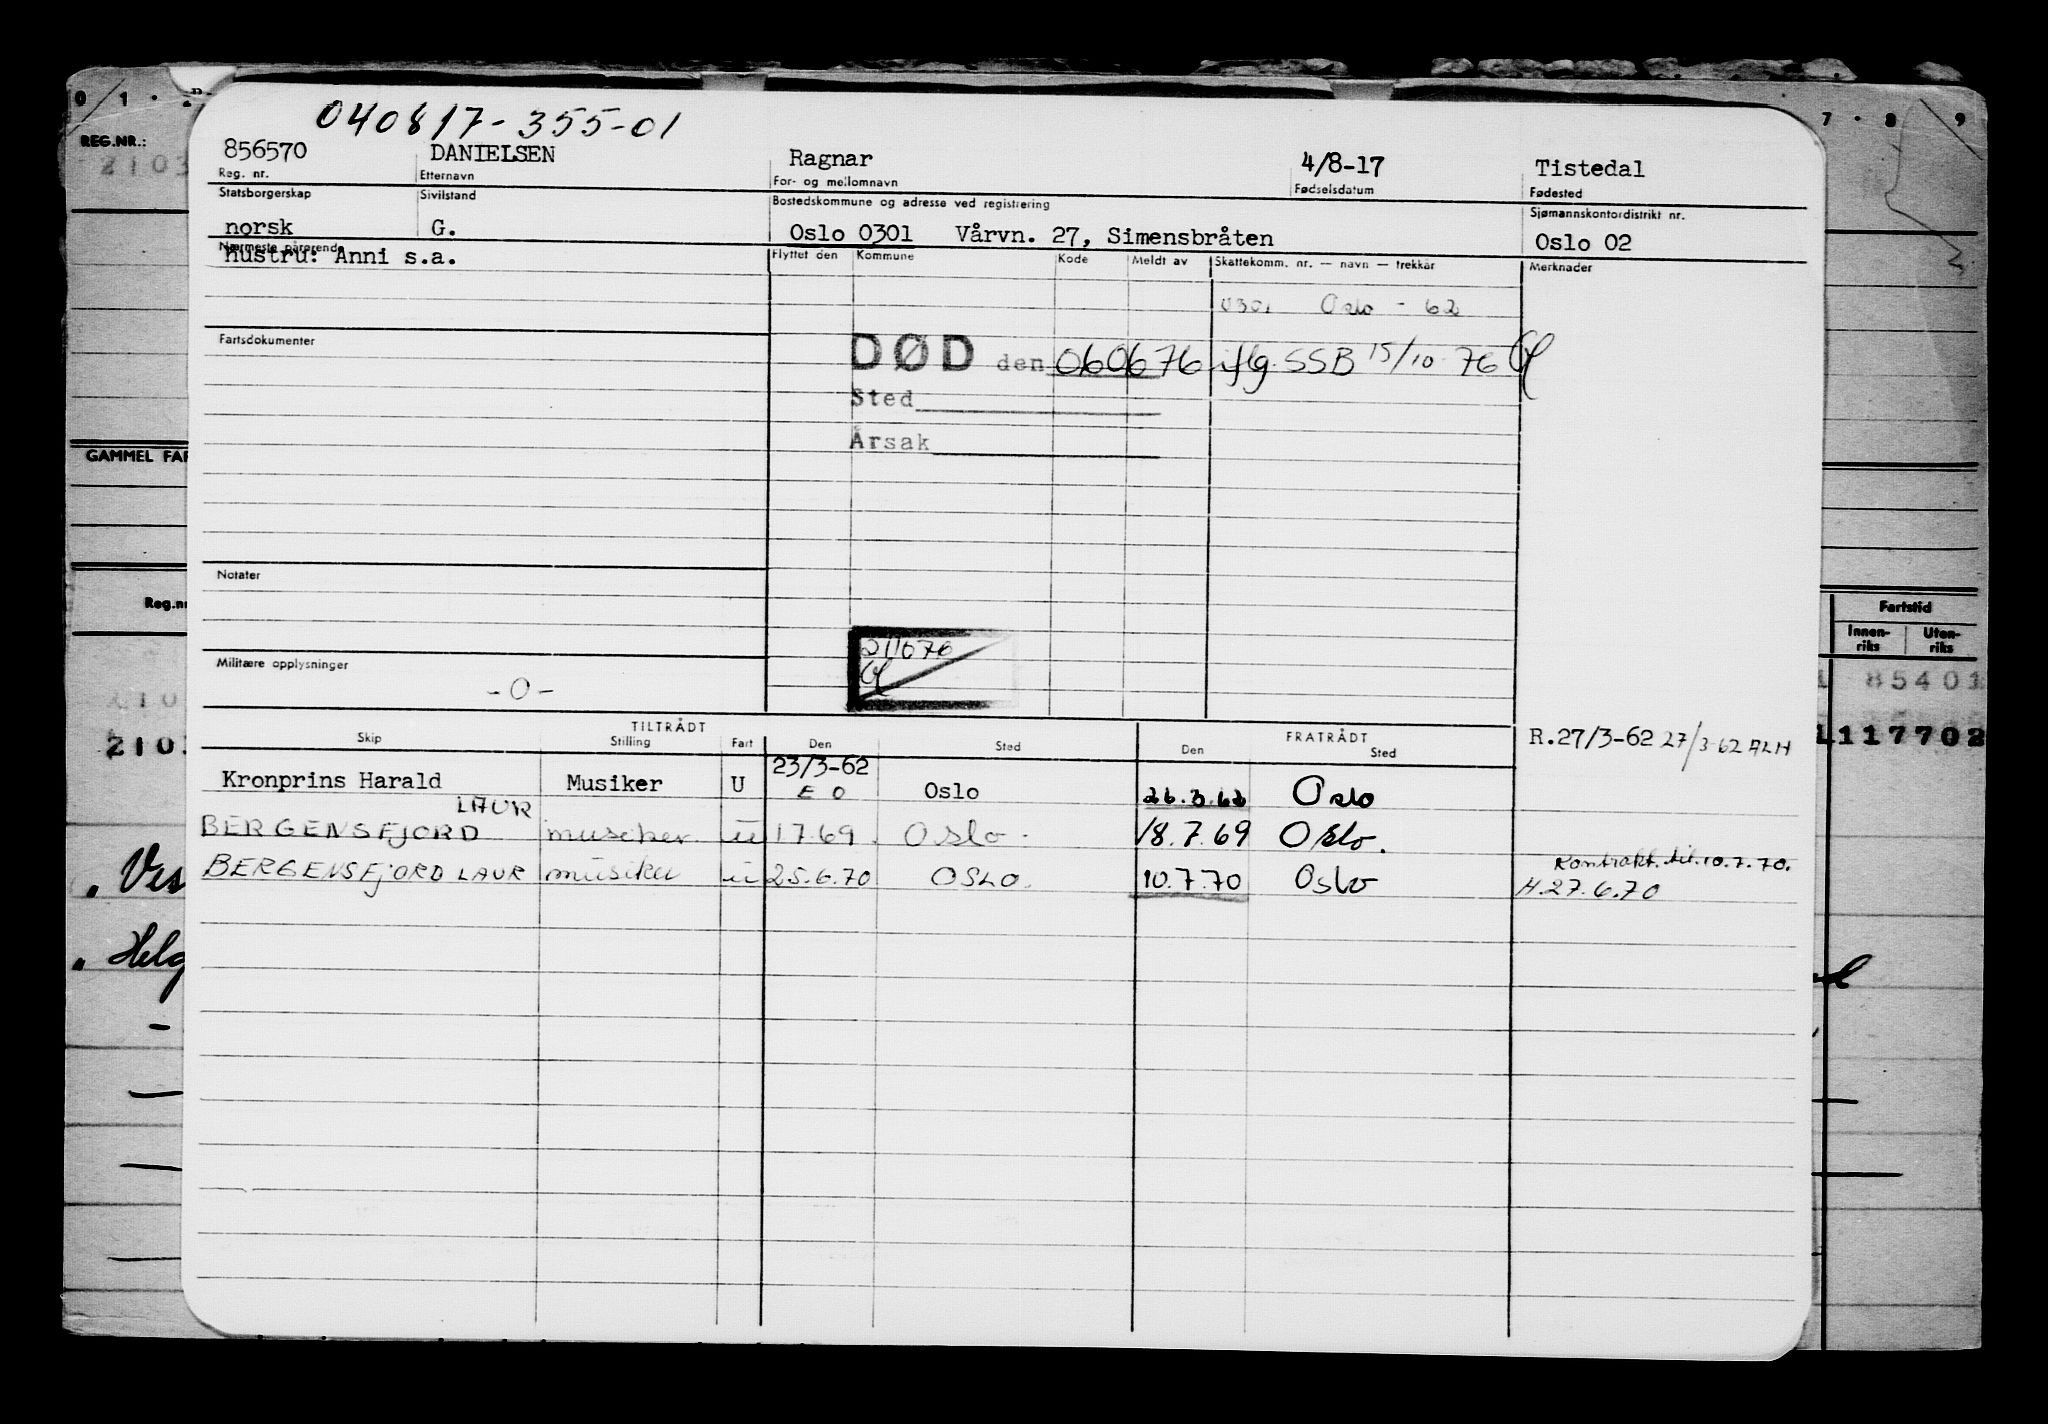 0 1 ·
7 · 8 9
040817-355-01
REG.NR.:
2103
856570 DANIELSEN Ragnar 4/8-17 Tistedal
Reg. nr. Etternavn For- og mellomnavn Fødselsdatum Fødested
Statsborgerskap Sivilstand Bostedskommune og adresse ved registrering Sjømannskontordistrikt nr.
norsk G. Oslo 0301 Vårvn. 27, Simensbråten Oslo 02
Nærmeste pårørende Flyttet den Kommune Kode Meldt av Skattekomm. nr. — navn — trekkår Merknader
hustru: Anni s.a.
0301 Oslo - 62
Fartsdokumenter
DØD den 060676 iflg. SSB 15/10 76
Sted
Årsak
GAMMEL FAR
Notater
Reg.nr
Fartstid
Innen-riks Uten-riks
Militære opplysninger
- 0 -
211076
210
85401
2103
117702
TILTRÅDT FRATRÅDT
Skip Stilling Fart Den Sted Den Sted
R.27/3-62 27/3-62 ALH
23/3-62
Kronprins Harald Musiker U E O Oslo 26.3.62 Oslo
LAUR
BERGENSFJORD musiker u 1.7.69. Oslo. 18.7.69 Oslo.
Kontrakt. til. 10.7.70.
BERGENSFJORD LAUR musiker u 25.6.70 OSLO. 10.7.70 Oslo H.27.6.70
Ves
Helg